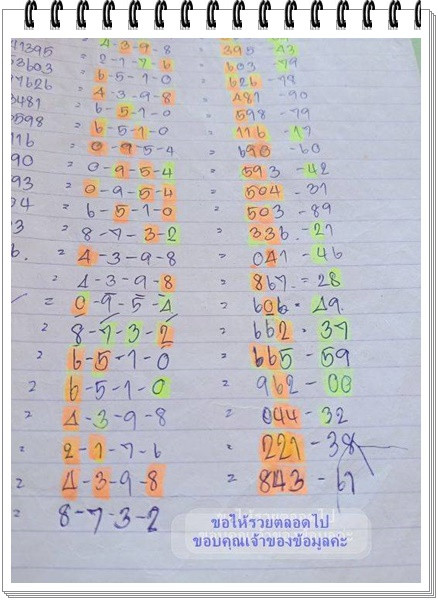 41395 = 4-3-9-8 = 395 - 43
53603 = 2-1-7-6 = 603 - 79
97626 = 6-5-1-0 = 626 - 78
3481 = 4-3-9-8 = 481 - 90
0598 = 6-5-1-0 = 598 - 79
116 = 6-5-1-0 = 116 - 17
90 = 0-9-5-4 = 690 - 60
93 = 0-9-5-4 = 593 - 42
04 = 0-9-5-4 = 504 - 31
= 6-5-1-0 = 503 - 89
= 8-7-3-2 = 336 - 21
6. = 4-3-9-8 = 041 - 46
= 4-3-9-8 = 867 = 28
= 0-9-5-4 = 606 = 49
= 8-7-3-2 = 662 - 37
= 6-5-1-0 = 665 - 59
= 6-5-1-0 = 962 - 00
= 4-3-9-8 = 044 - 32
= 2-1-7-6 = 221 - 38
= 4-3-9-8 = 843 - 61
= 8-7-3-2
ขอให้รวยตลอดไป
ขอบคุณเจ้าของข้อมูลค่ะ